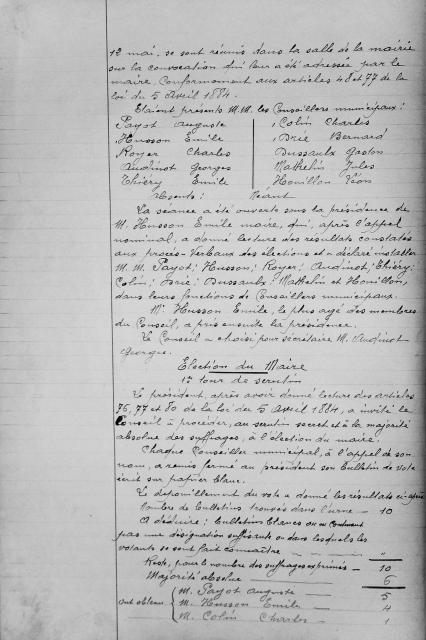 1er mai, se sont réunis dans la salle de la mairie
sur la convocation qui leur a été adressée par le
maire, conformément aux articles 48 et 77 de la
loi du 5 Avril 1884.
Etaient présents M.M. les Conseillers municipaux :
Payot Auguste , Colin Charles
Husson Emile , Drié Bernard
Royer Charles Dussaulx Gaston
Audinot Georges Mathelin Jules
Thiéry Emile Houillon Léon
Absents : Néant
La séance a été ouverte sous la présidence de
M. Husson Emile maire, qui, après l'appel
nominal, a donné lecture des résultats constatés
aux procès-verbaux des élections et a déclaré installer
M.M. Payot ; Husson ; Royer ; Audinot ; Thiéry ;
Colin ; Drié ; Dussaulx ; Mathelin et Houillon,
dans leurs fonctions de Conseillers municipaux.
Mr Husson Emile, le plus âgé des membres
du Conseil, a pris ensuite la présidence.
Le Conseil a choisi pour secrétaire M. Audinot
Georges.
Election du Maire
1er tour de scrutin
Le président, après avoir donné lecture des articles
76, 77 et 80 de la loi du 5 Avril 1884, a invité le
Conseil à procéder, au scrutin secret et à la majorité
absolue des suffrages, à l'élection du maire.
Chaque Conseiller municipal, à l'appel de son
nom, a remis fermé au président son bulletin de vote
écrit sur papier blanc.
Le dépouillement du vote a donné les résultats ci-après
Nombre de bulletins trouvés dans l'urne — 10
A déduire : bulletins blancs ou ne contenant
pas une désignation suffisante ou dans lesquels les
votants se sont fait connaître — "
Reste, pour le nombre des suffrages exprimés — 10
Majorité absolue — 6
M. Payot Auguste — 5
ont obtenu { M. Husson Emile — 4
M. Colin Charles — 1